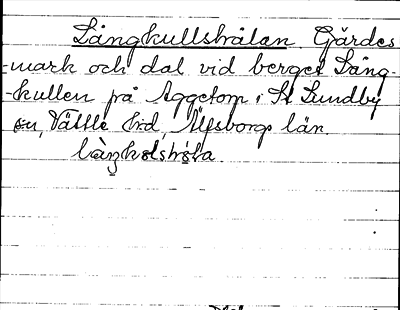 Långkullshålan Gärdes
-mark och dal vid berget Lång-
-kullen på Aggetorp i St Lundby
sn, Vättle hd, Älfsborgs län